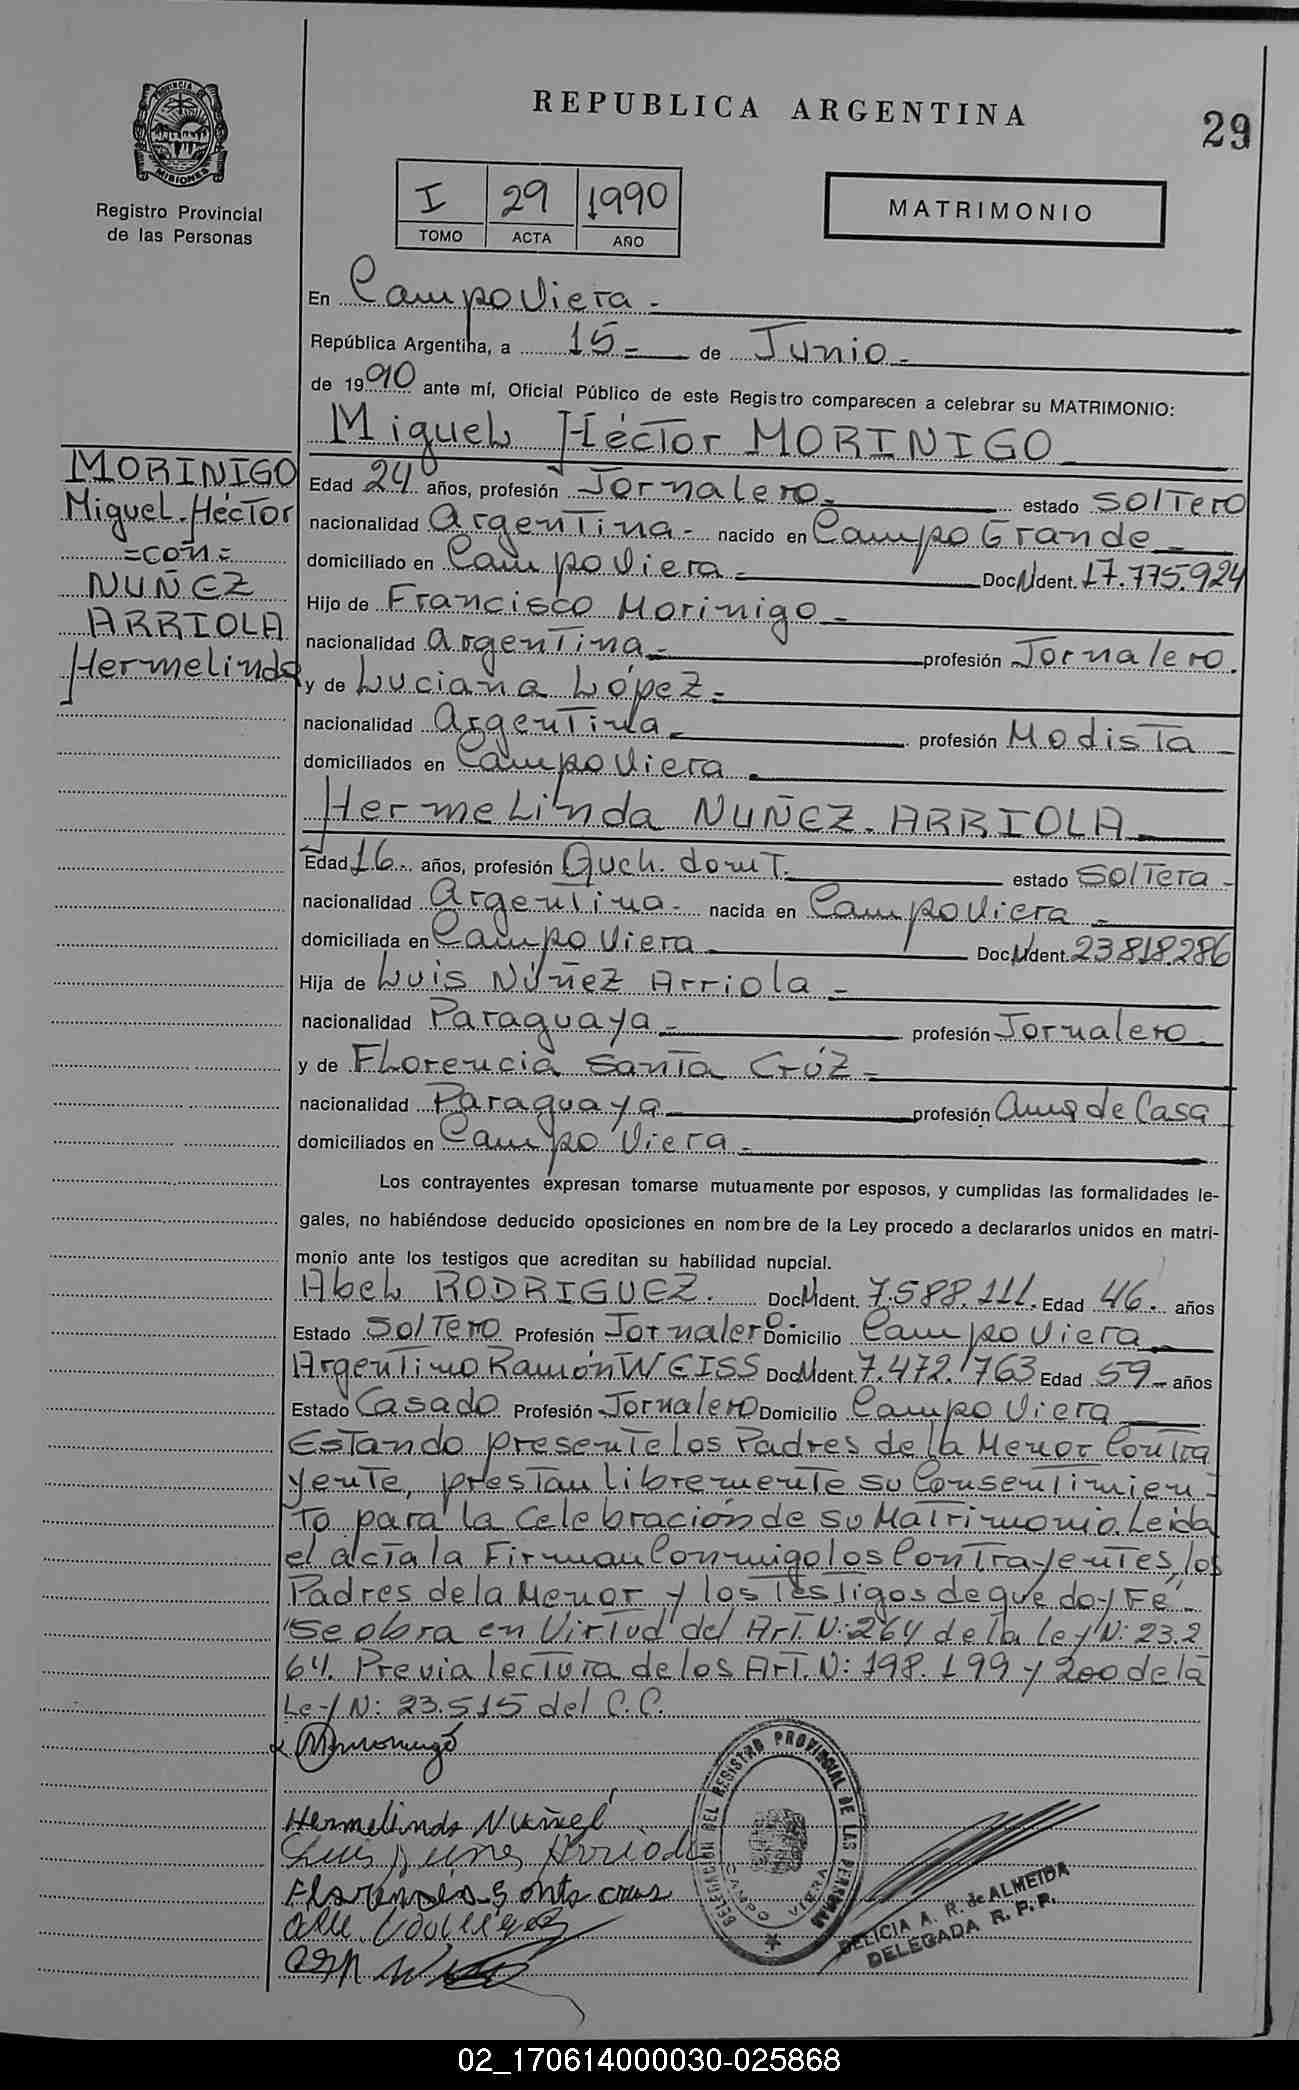 REPUBLICA ARGENTINA
29
PROVINCIA DE
MISIONES
Registro Provincial
de las Personas
I 29 1990
TOMO ACTA AÑO
MATRIMONIO
En Campo Viera -
República Argentina, a 15 - de Junio -
de 1990 ante mí, Oficial Público de este Registro comparecen a celebrar su MATRIMONIO:
Miguel Héctor MORINIGO
MORINIGO
Miguel Héctor
=con=
NUÑEZ
ARRIOLA
Hermelinda
Edad 24 años, profesión Jornalero - estado Soltero
nacionalidad Argentina - nacido en Campo Grande -
domiciliado en Campo Viera - Doc. N Ident. 17.775.924
Hijo de Francisco Morinigo -
nacionalidad Argentina - profesión Jornalero.
y de Luciana López -
nacionalidad Argentina - profesión Modista -
domiciliados en Campo Viera -
Hermelinda NUÑEZ ARRIOLA
Edad 16 - años, profesión Queh. domt. estado Soltera -
nacionalidad Argentina - nacida en Campo Viera -
domiciliada en Campo Viera - Doc. N Ident. 23.818.286
Hija de Luis Núñez Arriola -
nacionalidad Paraguaya - profesión Jornalero -
y de Florencia Santa Crúz -
nacionalidad Paraguaya profesión Ama de Casa
domiciliados en Campo Viera -
Los contrayentes expresan tomarse mutuamente por esposos, y cumplidas las formalidades le-
gales, no habiéndose deducido oposiciones en nombre de la Ley procedo a declararlos unidos en matri-
monio ante los testigos que acreditan su habilidad nupcial.
Abel RODRIGUEZ. Doc. N Ident. 7.588.111. Edad 46 - años
Estado Soltero Profesión Jornalero - Domicilio Campo Viera
Argentino Ramón WEISS Doc. N Ident. 7.472.763 Edad 59 - años
Estado Casado Profesión Jornalero Domicilio Campo Viera
Estando presente los Padres de la Menor Contra
yente, prestan libremente su Consentimien-
to para la Celebración de su Matrimonio. Leida
el acta la Firman Conmigo los Contrayentes, los
Padres de la Menor y los Testigos de que doy Fé -
Se obra en Virtud del Art. N: 264 de la ley N: 23.2
64. Previa lectura de los Art. N: 198. 199 y 200 de la
Ley N: 23.515 del C.C.
Hermelinda Nuñez
Luis Nuñes Arriola
Florencia Santa cruz
DELEGACION DEL REGISTRO PROVINCIAL DE LAS PERSONAS
CAMPO VIERA
DELICIA A. R. de ALMEIDA
DELEGADA R. P. P.
02_170614000030-025868